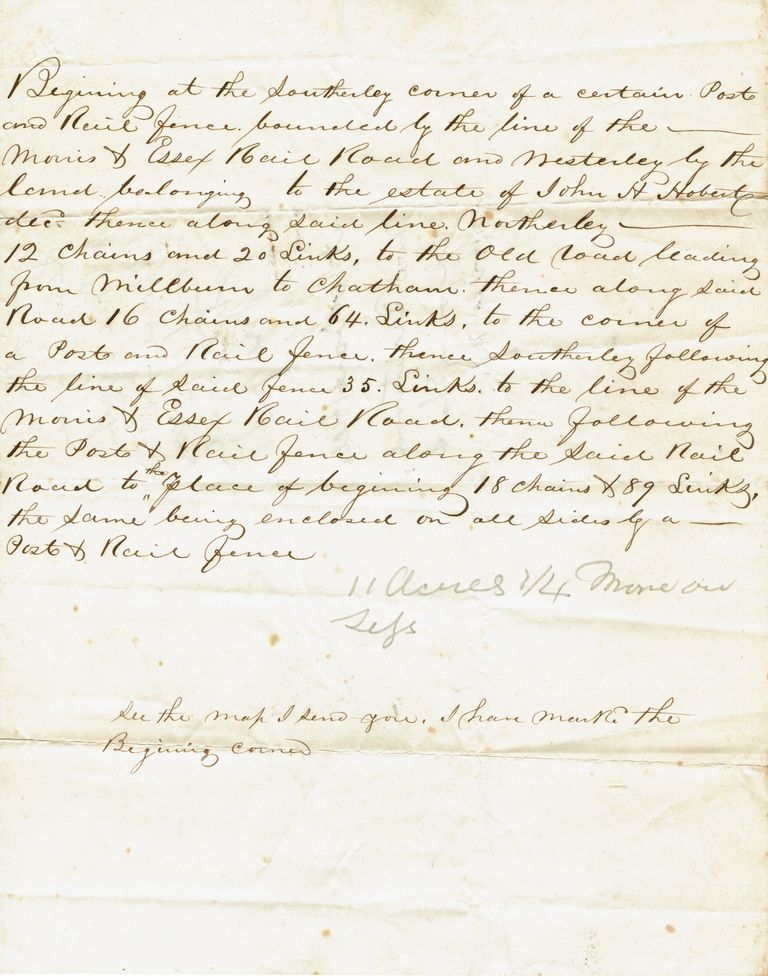 Begining at the Southerley corner of a certain Post
and Rail fence. bounded by the line of the —
Morris & Essex Rail Road and Westerley by the
land. belonging to the estate of John H Hobert
decᵈ. thence along said line. Northerley —
12 Chains and 20 Links, to the Old road leading
from Millburn to Chatham. thence along said
Road 16 Chains and 64. Links. to the corner of
a Post and Rail fence. thence Southerley following
the line of said fence 35. Links. to the line of the
Morris & Essex Rail Road. thence following
the Post & Rail fence along the said Rail
Road to "the place of begining 18 Chains & 89 Links,
the same being enclosed on all sides by a —
Post & Rail fence
11 Acres 1/4 More or
Less
See the map I send you. I have markᵉ the
Begining corner